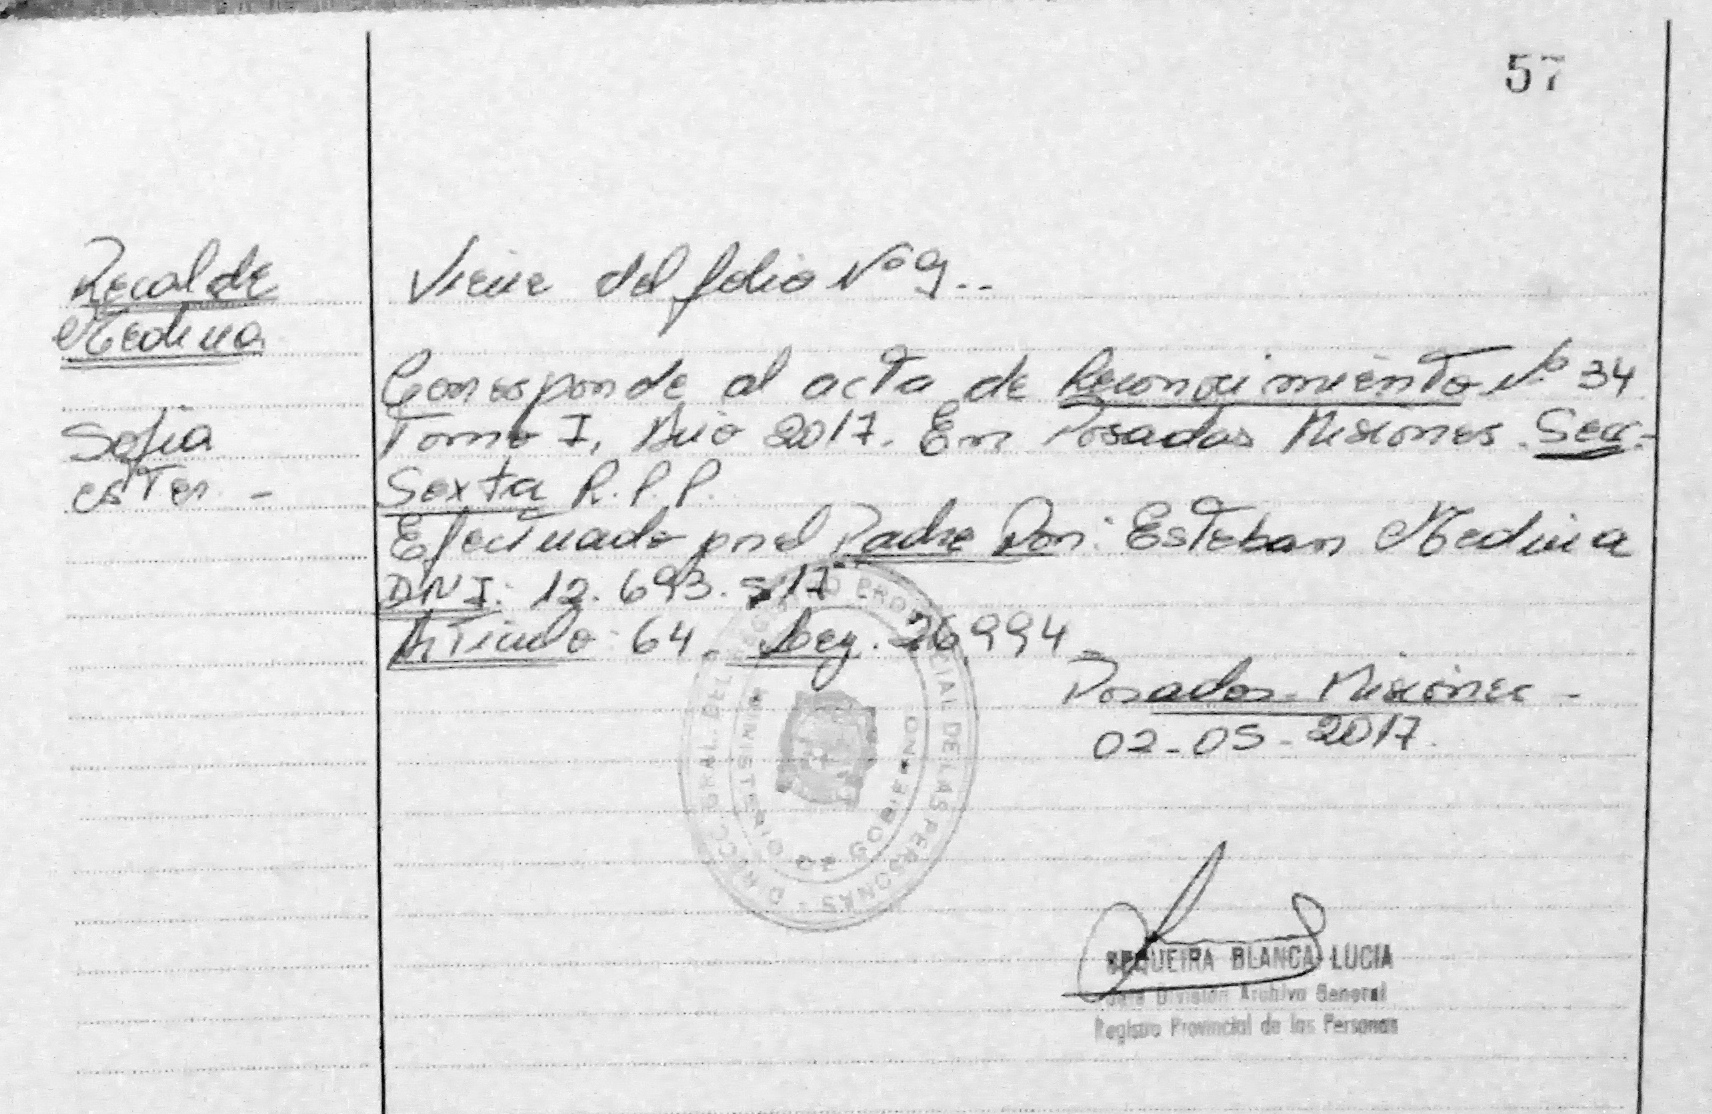 57
Recalde
Medina
Sofia
Ester. -
Viene del folio Nº 9..
Corresponde al acta de Reconocimiento Nº 34
Tomo I, Año 2017. En Posadas Misiones. Secc-
Sexta R.P.P.
Efectuado por el Padre Don: Esteban Medina
DNI: 12.693.517
Artículo: 64. Leg. 26994
Posadas - Misiones -
02-05-2017.
DIRECC. GRAL. DEL REGISTRO PROVINCIAL DE LAS PERSONAS -
MINISTERIO DE GOBIERNO
SEQUEIRA BLANCA LUCIA
Jefa División Archivo General
Registro Provincial de las Personas